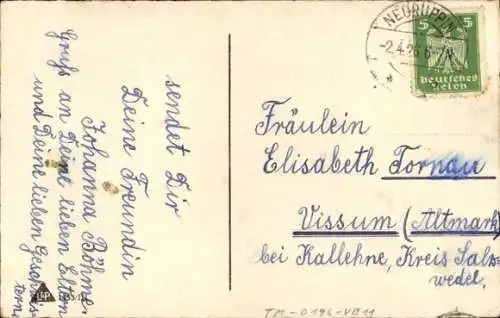 sendet Dir
Deine Freundin
Johanna Böhme.
Gruß an Deine lieben Eltern
und Deine lieben Geschwis-
tern
NEURUPPIN
-2.4.26.
5 5
Deutsches
Reich
Fräulein
Elisabeth Tornau
Vissum (Altmark)
bei Kallehne, Kreis Salz-
wedel.
TM-0196-VB11